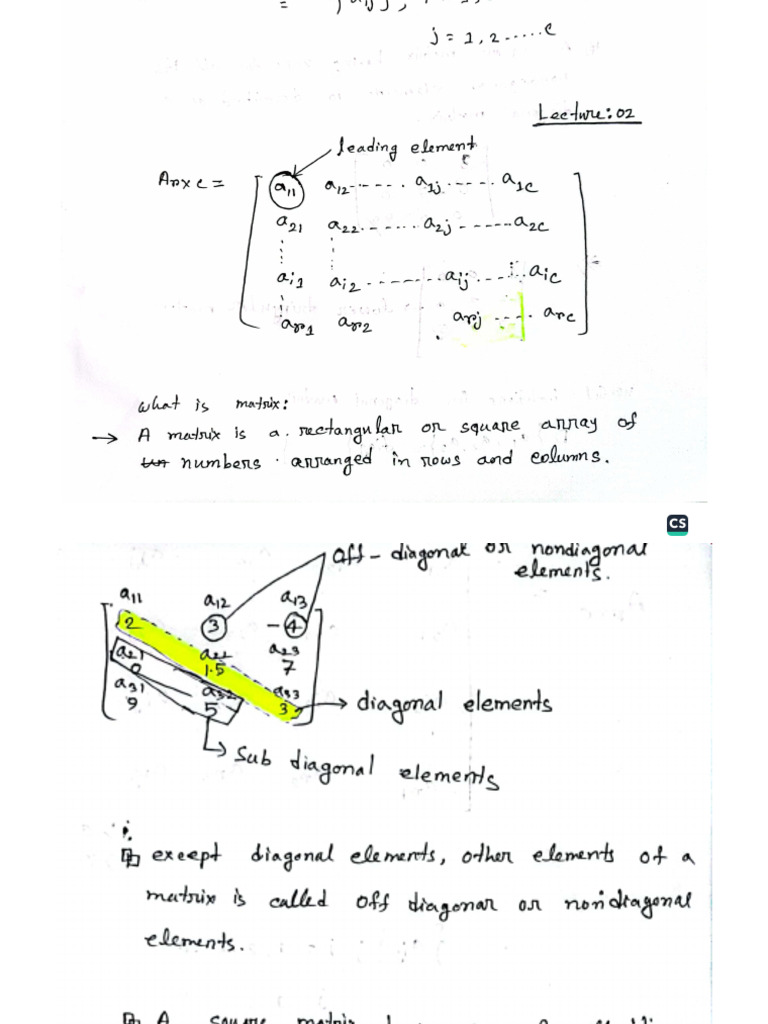 j = 1, 2 ..... c
Lecture: 02
leading element
Arxc = a11 a12 ----- a1j ----- a1c
a21 a22 ------ a2j ------ a2c
ai1 ai2 -------- aij ----- aic
ar1 ar2 arj ---- arc
what is matrix:
→ A matrix is a rectangular or square array of
numbers arranged in rows and columns.
CS
off - diagonal or nondiagonal
elements.
a11 a12 a13
2 3 -4
a21 a22 a23
0 1.5 7
a31 a32 a33
9 5 3 → diagonal elements
Sub diagonal elements
except diagonal elements, other elements of a
matrix is called off diagonar or nondiagonal
elements.
A square matrix